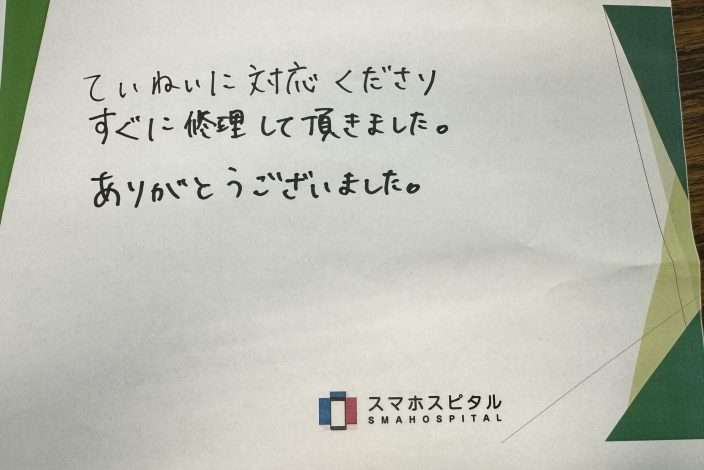 ていねいに対応くださり
すぐに修理して頂きました。
ありがとうございました。
スマホスピタル
SMAHOSPITAL